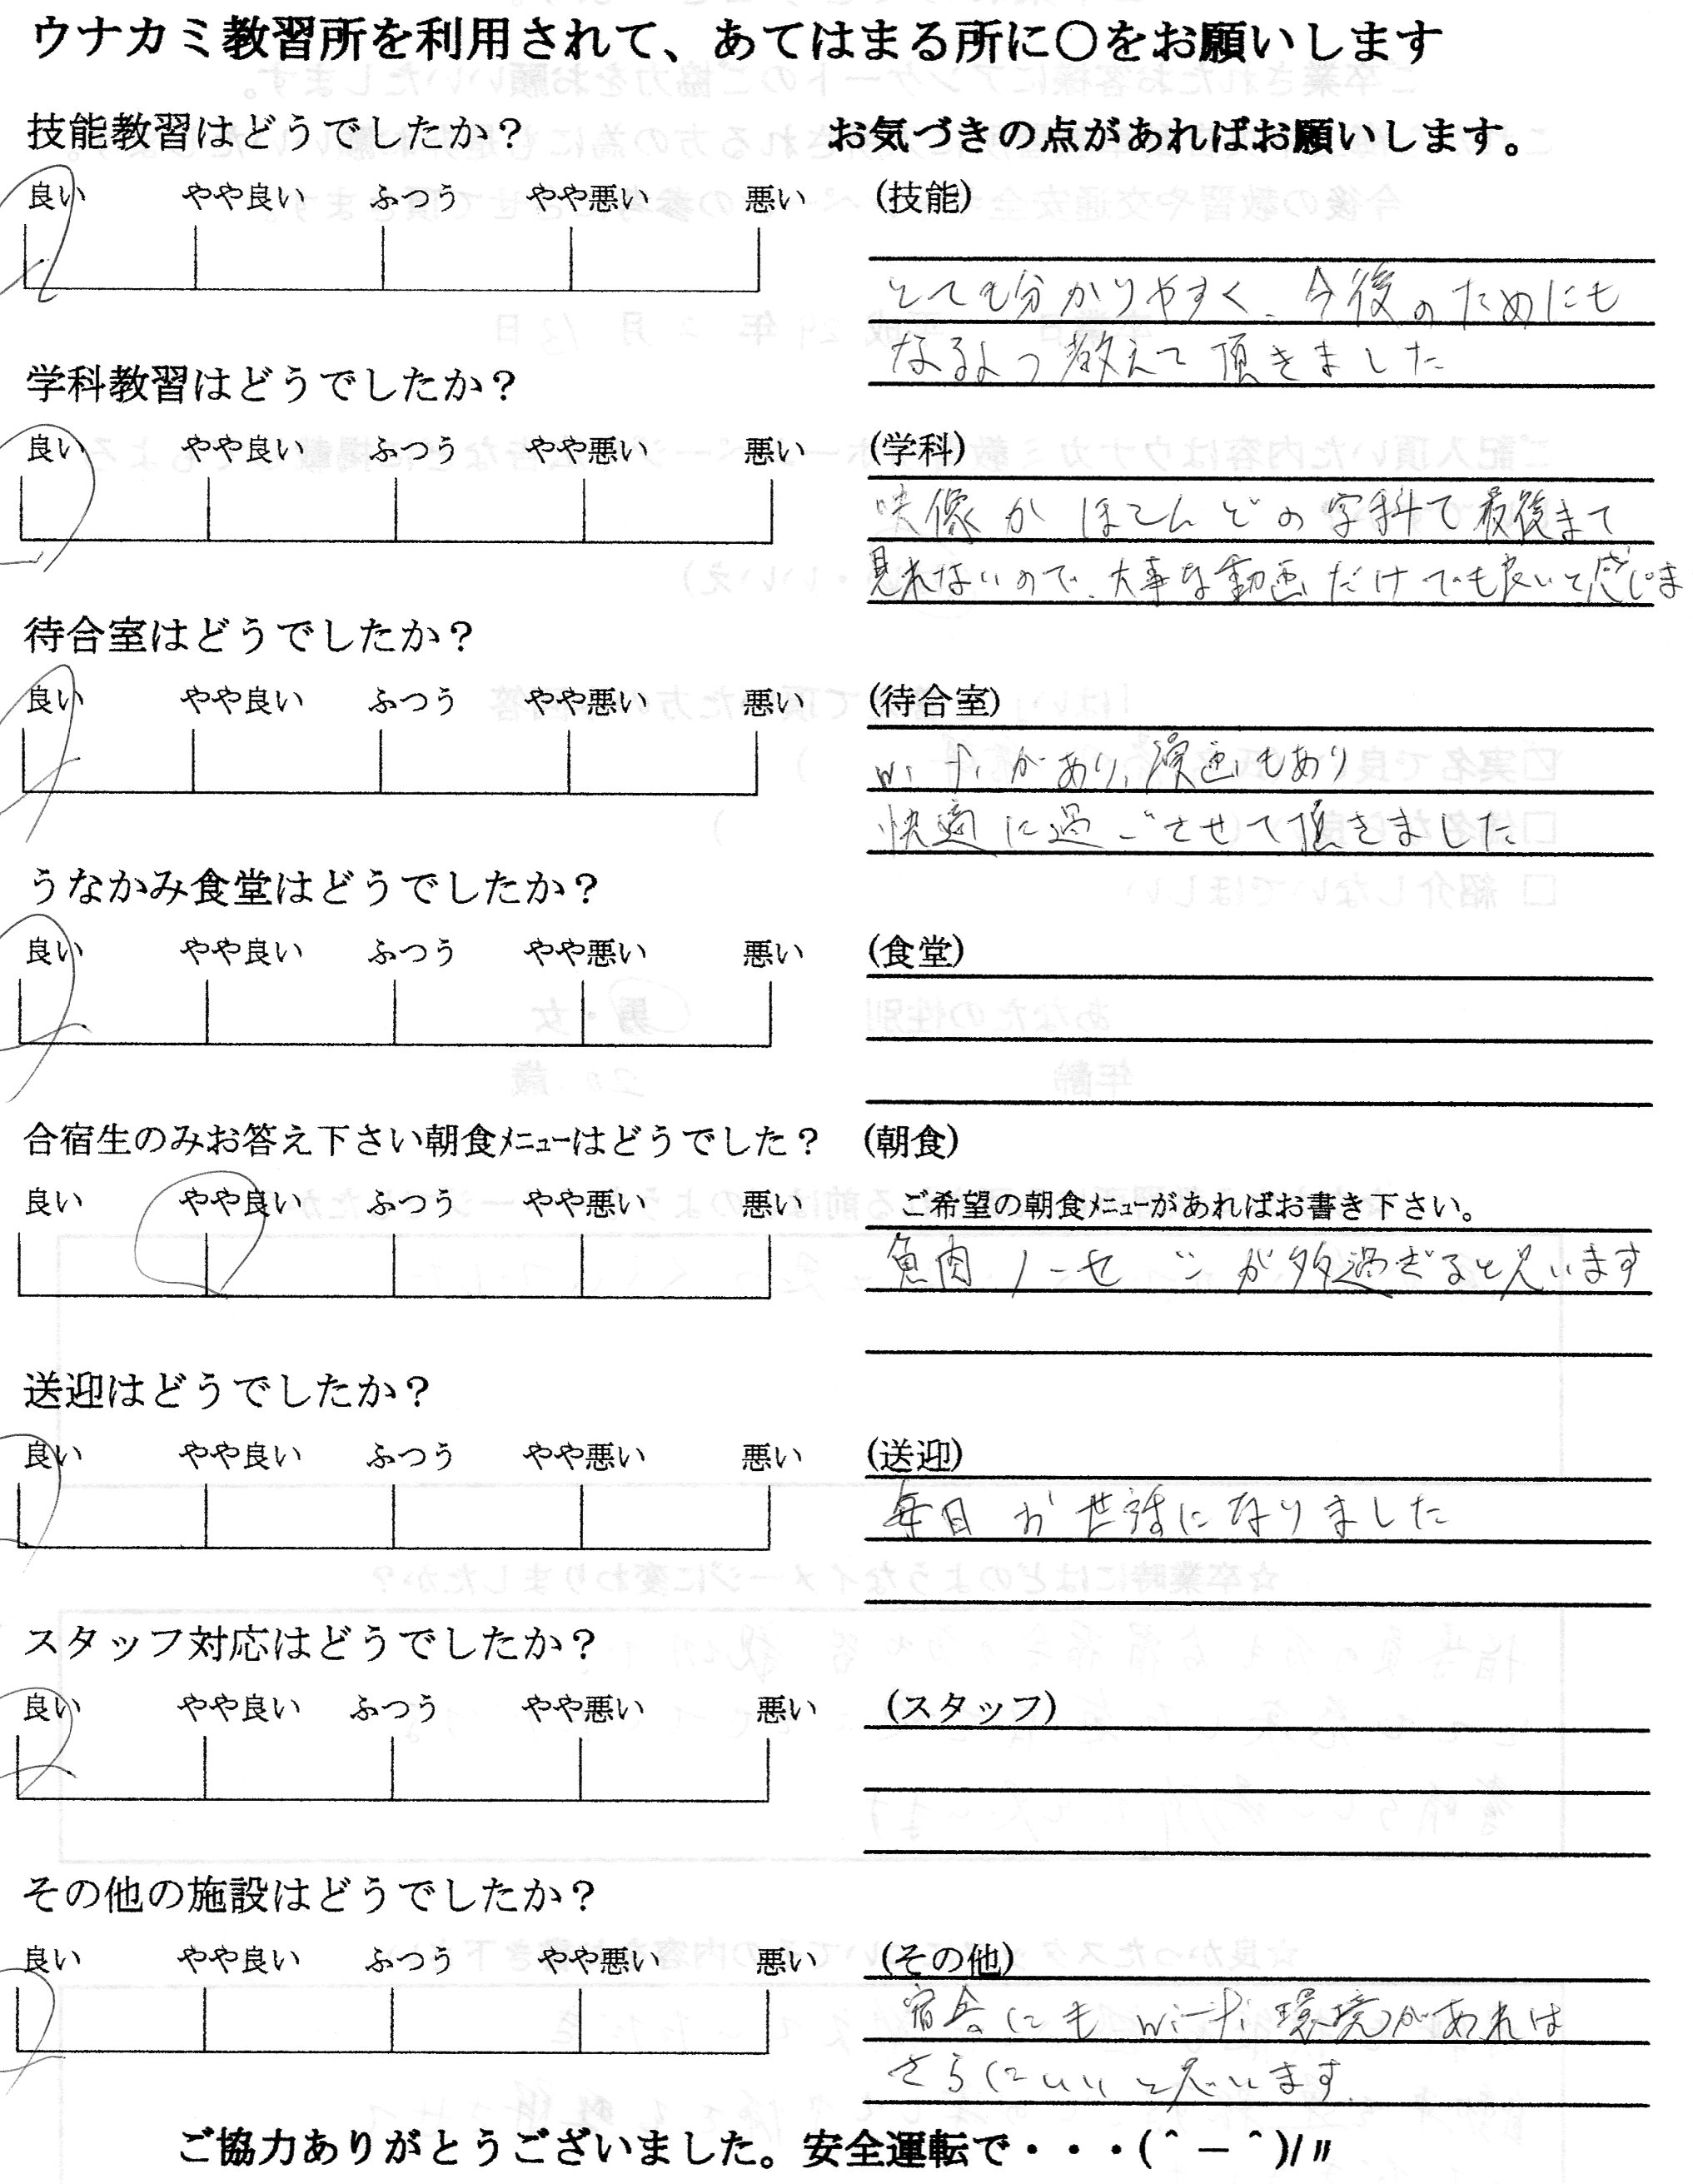 ウナカミ教習所を利用されて、あてはまる所に○をお願いします
技能教習はどうでしたか？
お気づきの点があればお願いします。
良い やや良い ふつう やや悪い 悪い
(技能)
とても分かりやすく、今後のためにも
なるよう教えて頂きました
学科教習はどうでしたか？
良い やや良い ふつう やや悪い 悪い
(学科)
映像がほとんどの学科で最後まで
見れないので、大事な動画だけでも良いと感じま
待合室はどうでしたか？
良い やや良い ふつう やや悪い 悪い
(待合室)
wi-fiがあり、漫画もあり
快適に過ごさせて頂きました
うなかみ食堂はどうでしたか？
良い やや良い ふつう やや悪い 悪い
(食堂)
合宿生のみお答え下さい朝食ﾒﾆｭｰはどうでした？
(朝食)
良い やや良い ふつう やや悪い 悪い
ご希望の朝食ﾒﾆｭｰがあればお書き下さい。
魚肉ソーセージが多過ぎると思います
送迎はどうでしたか？
良い やや良い ふつう やや悪い 悪い
(送迎)
毎日お世話になりました
スタッフ対応はどうでしたか？
良い やや良い ふつう やや悪い 悪い
(スタッフ)
その他の施設はどうでしたか？
良い やや良い ふつう やや悪い 悪い
(その他)
宿舎にもwi-fi環境があれば
さらにいいと思います。
ご協力ありがとうございました。安全運転で・・・(＾－＾)/〃